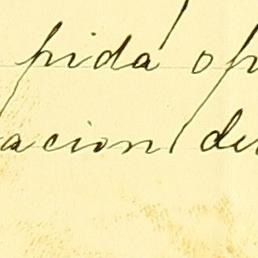 pida op
acion de